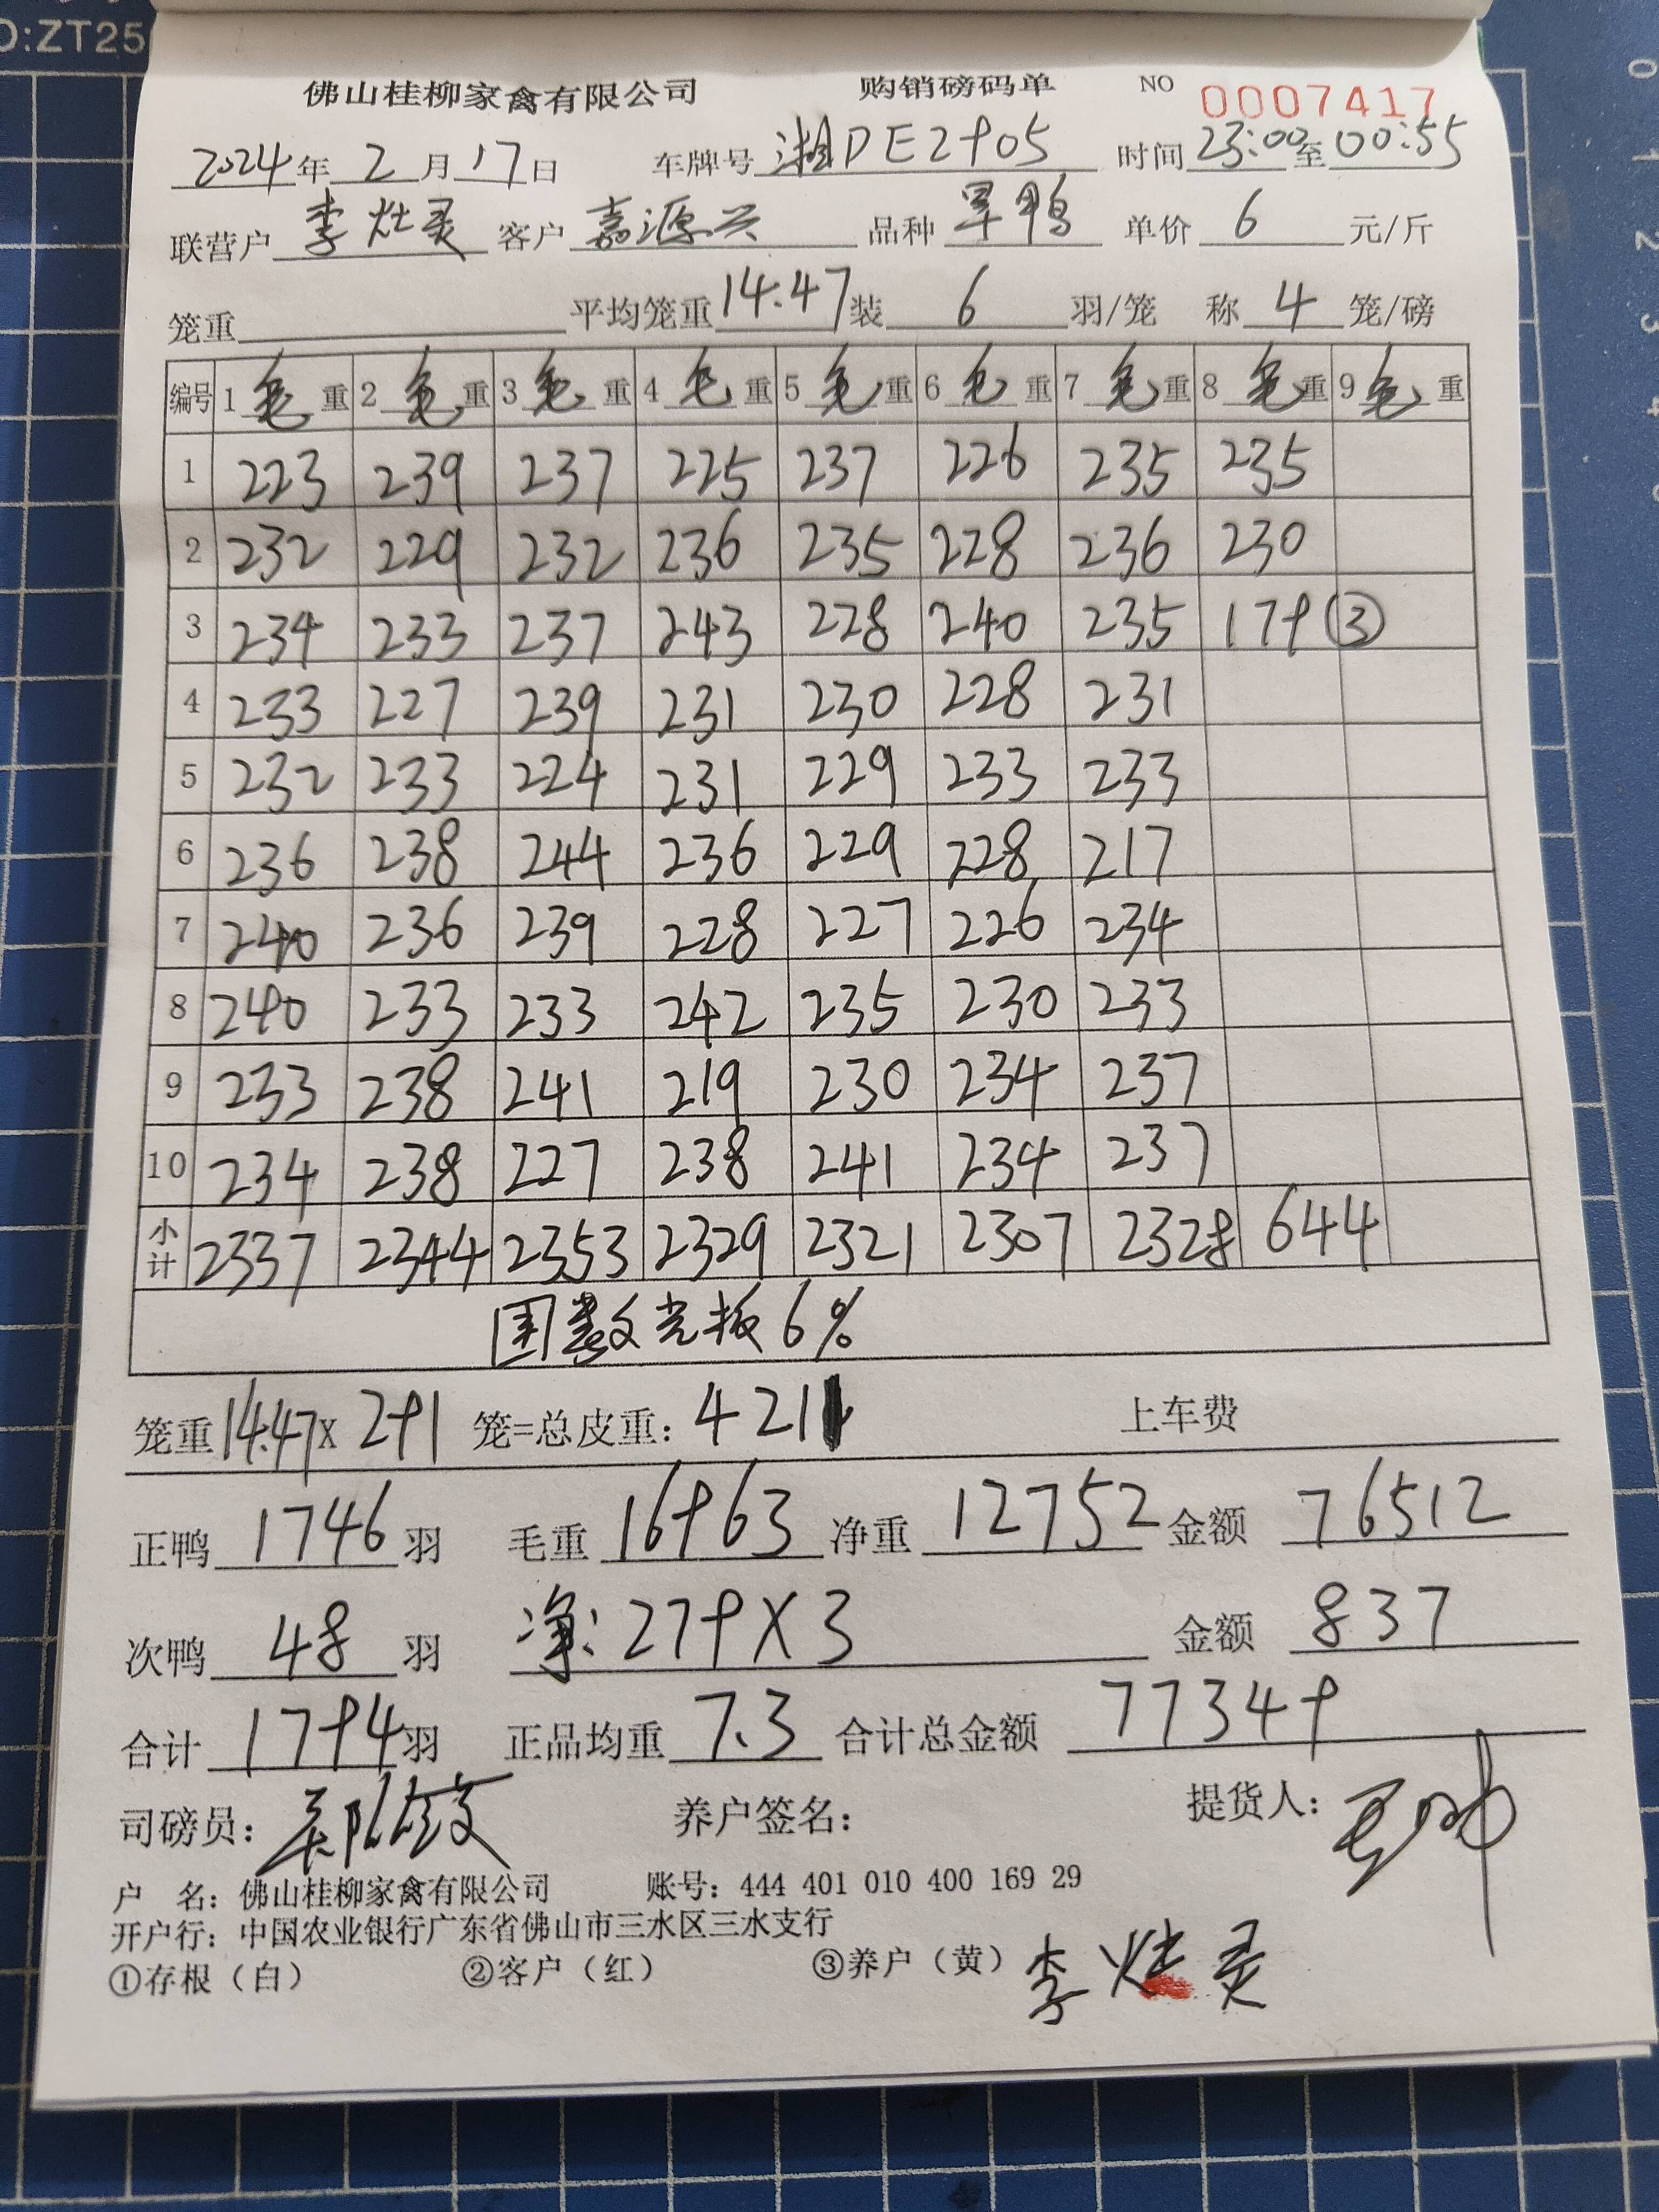 D:ZT25
佛山桂柳家禽有限公司 购销磅码单 NO 0007417
2024年2月17日 车牌号 湘DE2905 时间23:00至00:55
联营户 李灶灵 客户 嘉源兴 品种 旱鸭 单价 6 元/斤
笼重 平均笼重14.47装 6 羽/笼 称 4 笼/磅
编号 1毛重 2毛重 3毛重 4毛重 5毛重 6毛重 7毛重 8毛重 9毛重
1 223 239 237 225 237 226 235 235
2 232 229 232 236 235 228 236 230
3 234 233 237 243 228 240 235 179 ③
4 233 227 239 231 230 228 231
5 232 233 224 231 229 233 233
6 236 238 244 236 229 228 217
7 240 236 239 228 227 226 234
8 240 233 233 242 235 230 233
9 233 238 241 219 230 234 237
10 234 238 227 238 241 234 237
小计 2337 2344 2353 2329 2321 2307 2328 644
光板6%
笼重14.47X 291 笼=总皮重：4211 上车费
正鸭 1746 羽 毛重 16963 净重 12752 金额 76512
次鸭 48 羽 净：279X3 金额 837
合计 1794羽 正品均重 7.3 合计总金额 77349
司磅员： 养户签名： 提货人：
户 名：佛山桂柳家禽有限公司 账号：444 401 010 400 169 29
开户行：中国农业银行广东省佛山市三水区三水支行
①存根（白） ②客户（红） ③养户（黄） 李灶灵